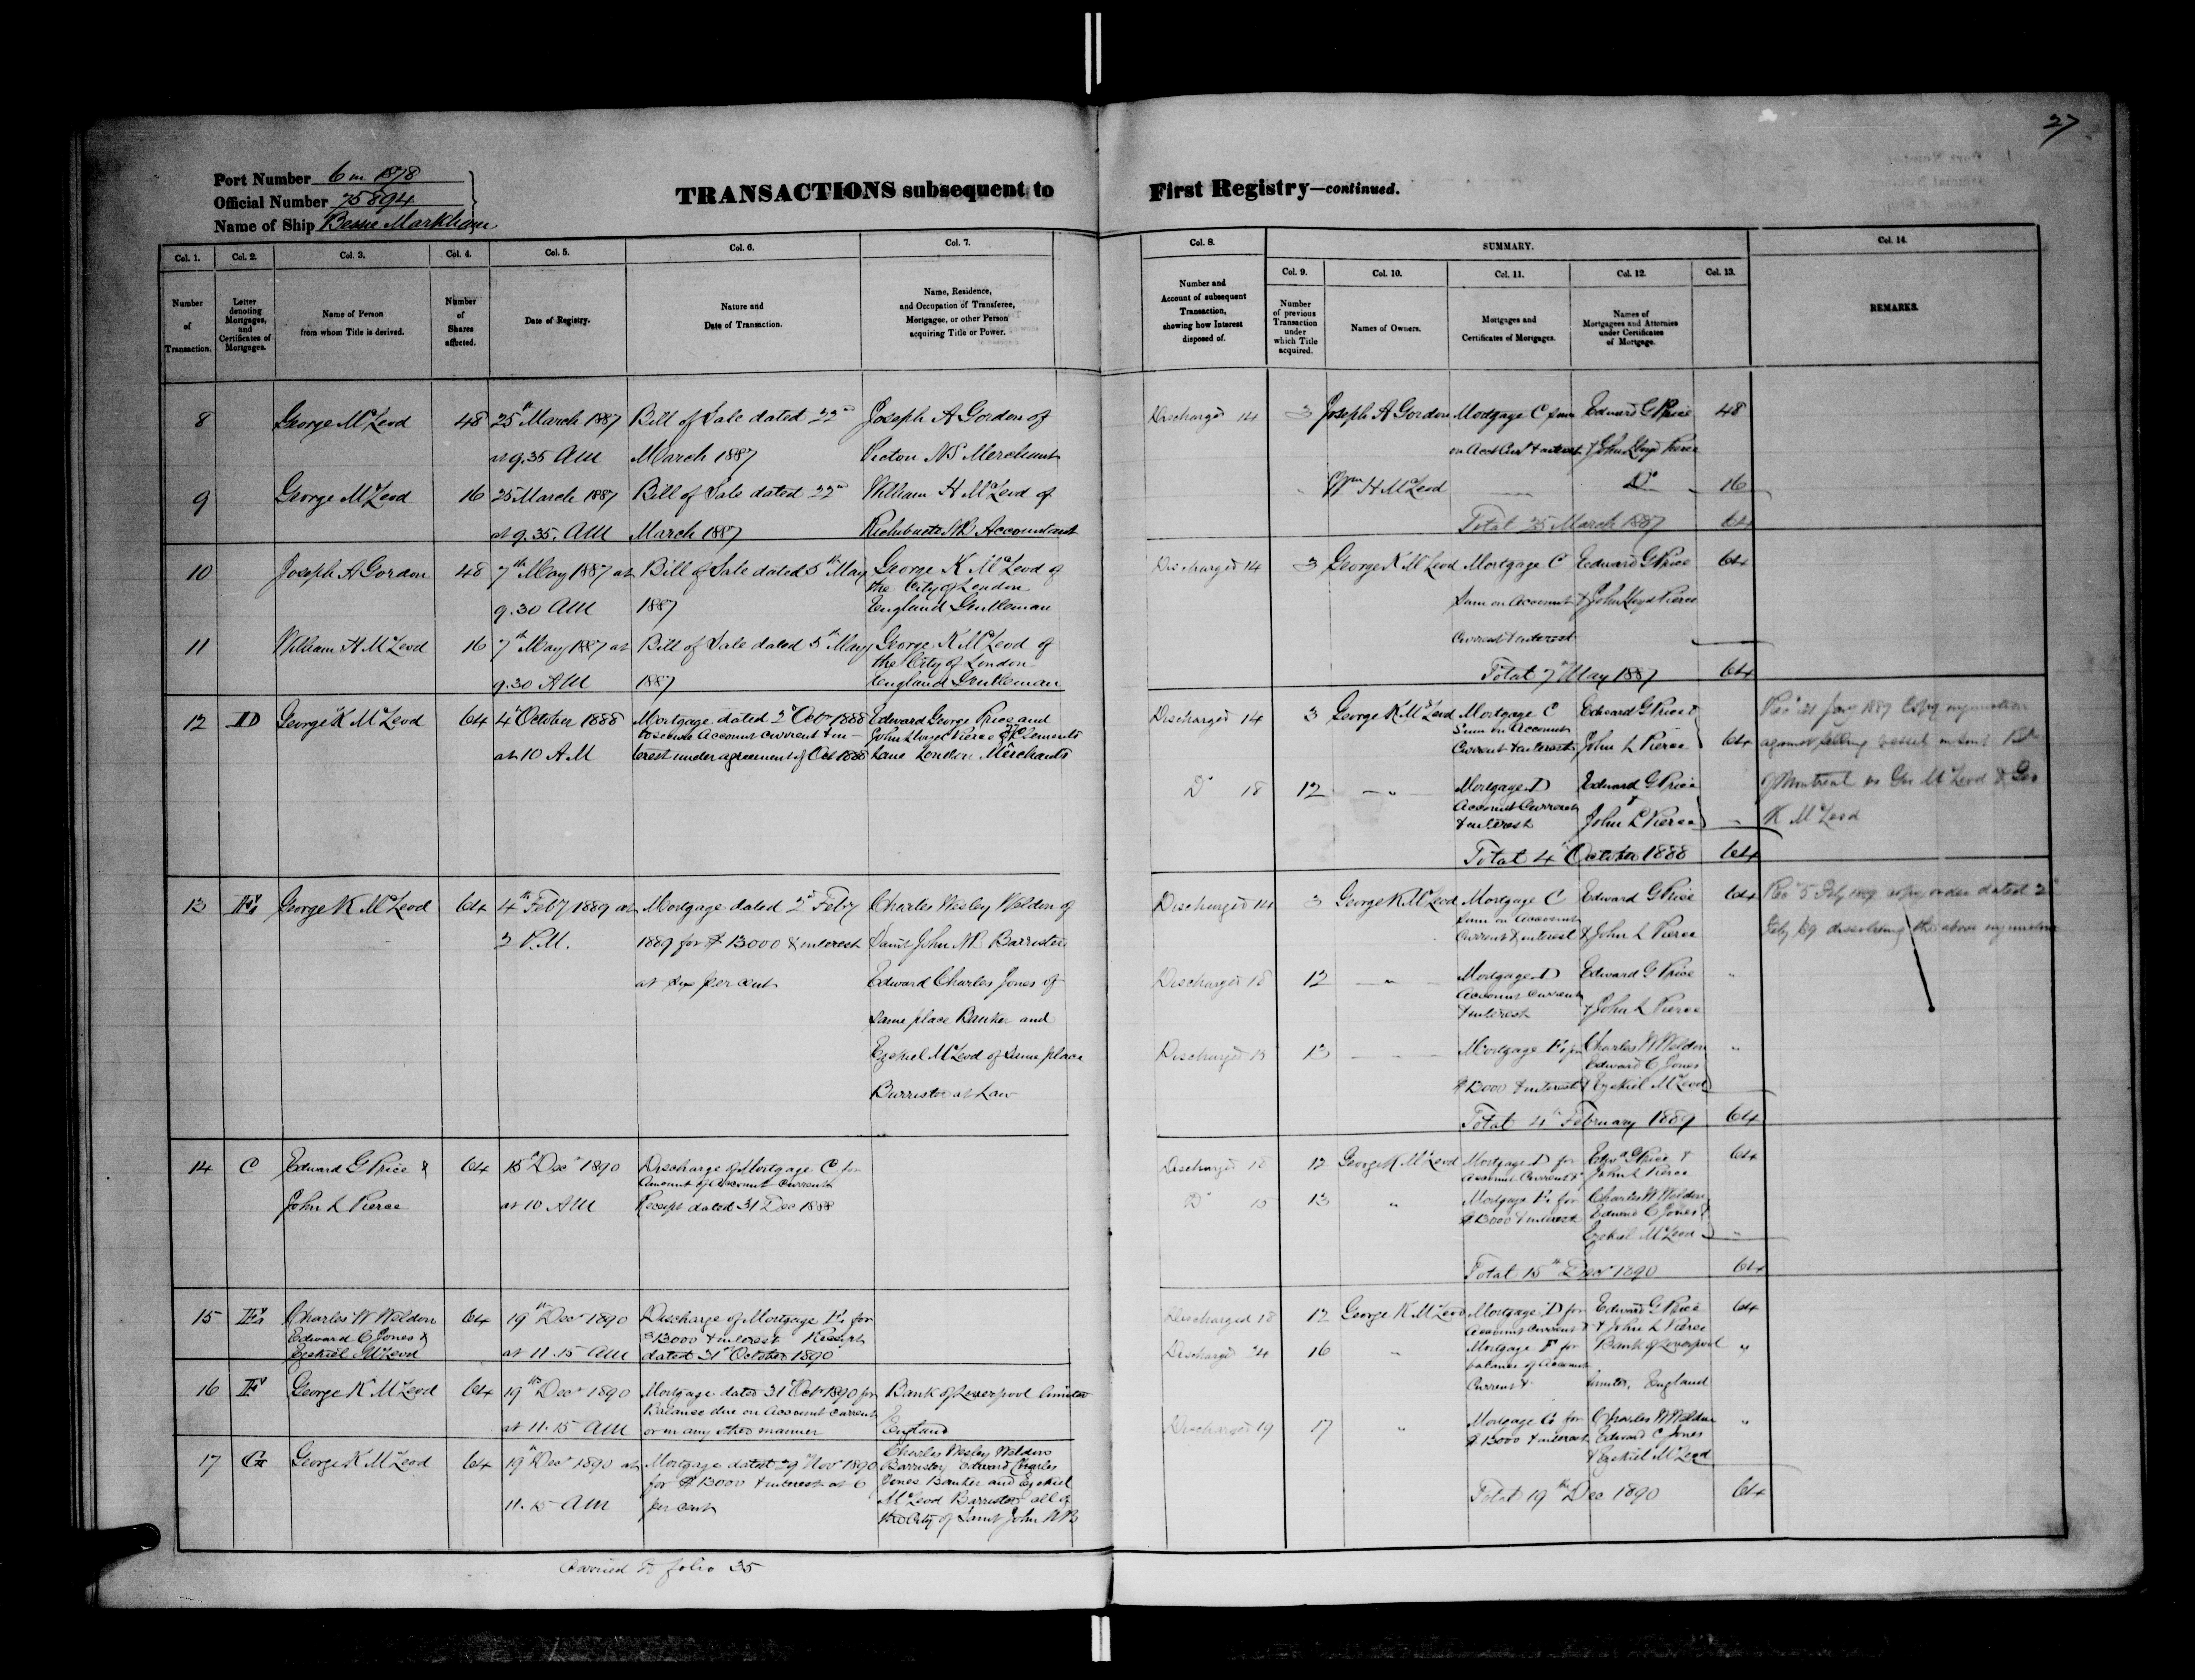 27
Port Number 6 in 1878
Official Number 75894
Name of Ship Bessie Markham
TRANSACTIONS subsequent to First Registry—continued.
Col. 1. Col. 2. Col. 3. Col. 4. Col. 5. Col. 6. Col. 7.
Number of Transaction.
Letter denoting Mortgages, and Certificates of Mortgages.
Name of Person from whom Title is derived.
Number of Shares affected.
Date of Registry.
Nature and Date of Transaction.
Name, Residence, and Occupation of Transferee, Mortgagee, or other Person acquiring Title or Power.
Col. 8. SUMMARY. Col. 14.
Col. 9. Col. 10. Col. 11. Col. 12. Col. 13.
Number and Account of subsequent Transaction, showing how Interest disposed of.
Number of previous Transaction under which Title acquired.
Names of Owners.
Mortgages and Certificates of Mortgages.
Names of Mortgagees and Attornies under Certificates of Mortgage.
REMARKS.
8 George McLeod 48 25th March 1887 Bill of Sale dated 22nd Joseph A Gordon of
at 9.35 AM March 1887 Pictou NS Merchant
9 George McLeod 16 25 March 1887 Bill of Sale dated 22nd William H McLeod of
at 9.35. AM March 1887 Richibucto NB Accountant
10 Joseph A Gordon 48 7th May 1887 at Bill of Sale dated 5th May George K McLeod of
the City of London
9.30 AM 1887 England Gentleman
11 William H McLeod 16 7th May 1887 at Bill of Sale dated 5th May George K McLeod of
the City of London
9.30 AM 1887 England Gentleman
12 D George K McLeod 64 4th October 1888 Mortgage dated 2d Octr 1888 Edward George Price and
to secure Account current & in- John Lloyd Pierce Clements
at 10 AM terest under agreement of Oct 1888 Lane London Merchants
13 E George K McLeod 64 4th Feby 1889 at Mortgage dated 2d Feby Charles Wesley Weldon of
3 P.M. 1889 for $13000 & interest Saint John NB Barrister
at six per cent Edward Charles Jones of
same place Banker and
Ezekiel McLeod of same place
Barrister at Law
14 C Edward G Price & 64 15th Decr 1890 Discharge of Mortgage C for
Amount of Account Current
John L Pierce at 10 AM Receipt dated 31 Dec 1888
15 E Charles W Weldon 64 19th Decr 1890 Discharge of Mortgage E for
Edward C Jones & $13000 & interest Receipt
Ezekiel McLeod at 11.15 AM dated 31st October 1890
16 F George K McLeod 64 19th Decr 1890 Mortgage dated 31st Octr 1890 for Bank of Liverpool limited
Balance due on Account current
at 11.15 AM or in any other manner England
17 G George K McLeod 64 19th Decr 1890 at Mortgage dated 29th Novr 1890 Charles Wesley Weldon
Barrister Edward Charles
for $13000 & interest at 6 Jones Banker and Ezekiel
11.15 AM per cent McLeod Barrister all of
the City of Saint John NB
Carried to folio 35
Discharged 14 3 Joseph A Gordon Mortgage C sum Edward G Price 48
on Acct Curt & interest & John Lloyd Pierce
Wm H McLeod Do 16
Total 25 March 1887 64
Discharged 14 3 George K McLeod Mortgage C Edward G Price 64
Sum on Account & John Lloyd Pierce
Current & interest
Total 7th May 1887 64
Discharged 14 3 George K McLeod Mortgage C Edward G Price &
Sum on Account
Current & interest John L Pierce 64
Do 18 12 " Mortgage D Edward G Price
Account Current &
& interest John L Pierce
Total 4th October 1888 64
Recd 21 Jany 1889 Copy injunction
against selling vessel
of Montreal vs Geo McLeod & Geo
K McLeod
Discharged 14 3 George K McLeod Mortgage C Edward G Price 64
Sum on Account
Current & interest & John L Pierce
Discharged 18 12 " Mortgage D Edward G Price "
Account Current
& interest & John L Pierce
Discharged 15 13 Mortgage E for Charles W Weldon "
Edward C Jones
$13000 & interest & Ezekiel McLeod
Total 4th February 1889 64
Recd 5 Feby 1889 copy order dated 2d
Feby 89 dissolving the above injunction
Discharged 18 12 George K McLeod Mortgage D for Edwd G Price & 64
Account Current & John L Pierce
Do 15 13 " Mortgage E for Charles W Weldon
$13000 & interest Edward C Jones &
Ezekiel McLeod "
Total 15th Decr 1890 64
Discharged 18 12 George K McLeod Mortgage D for Edward G Price 64
Account Current & & John L Pierce
Discharged 24 16 " Mortgage F for Bank of Liverpool "
balance of Account
Current & limited, England
Discharged 19 17 " Mortgage G for Charles W Weldon "
$13000 & interest Edward C Jones
& Ezekiel McLeod
Total 19th Dec 1890 64